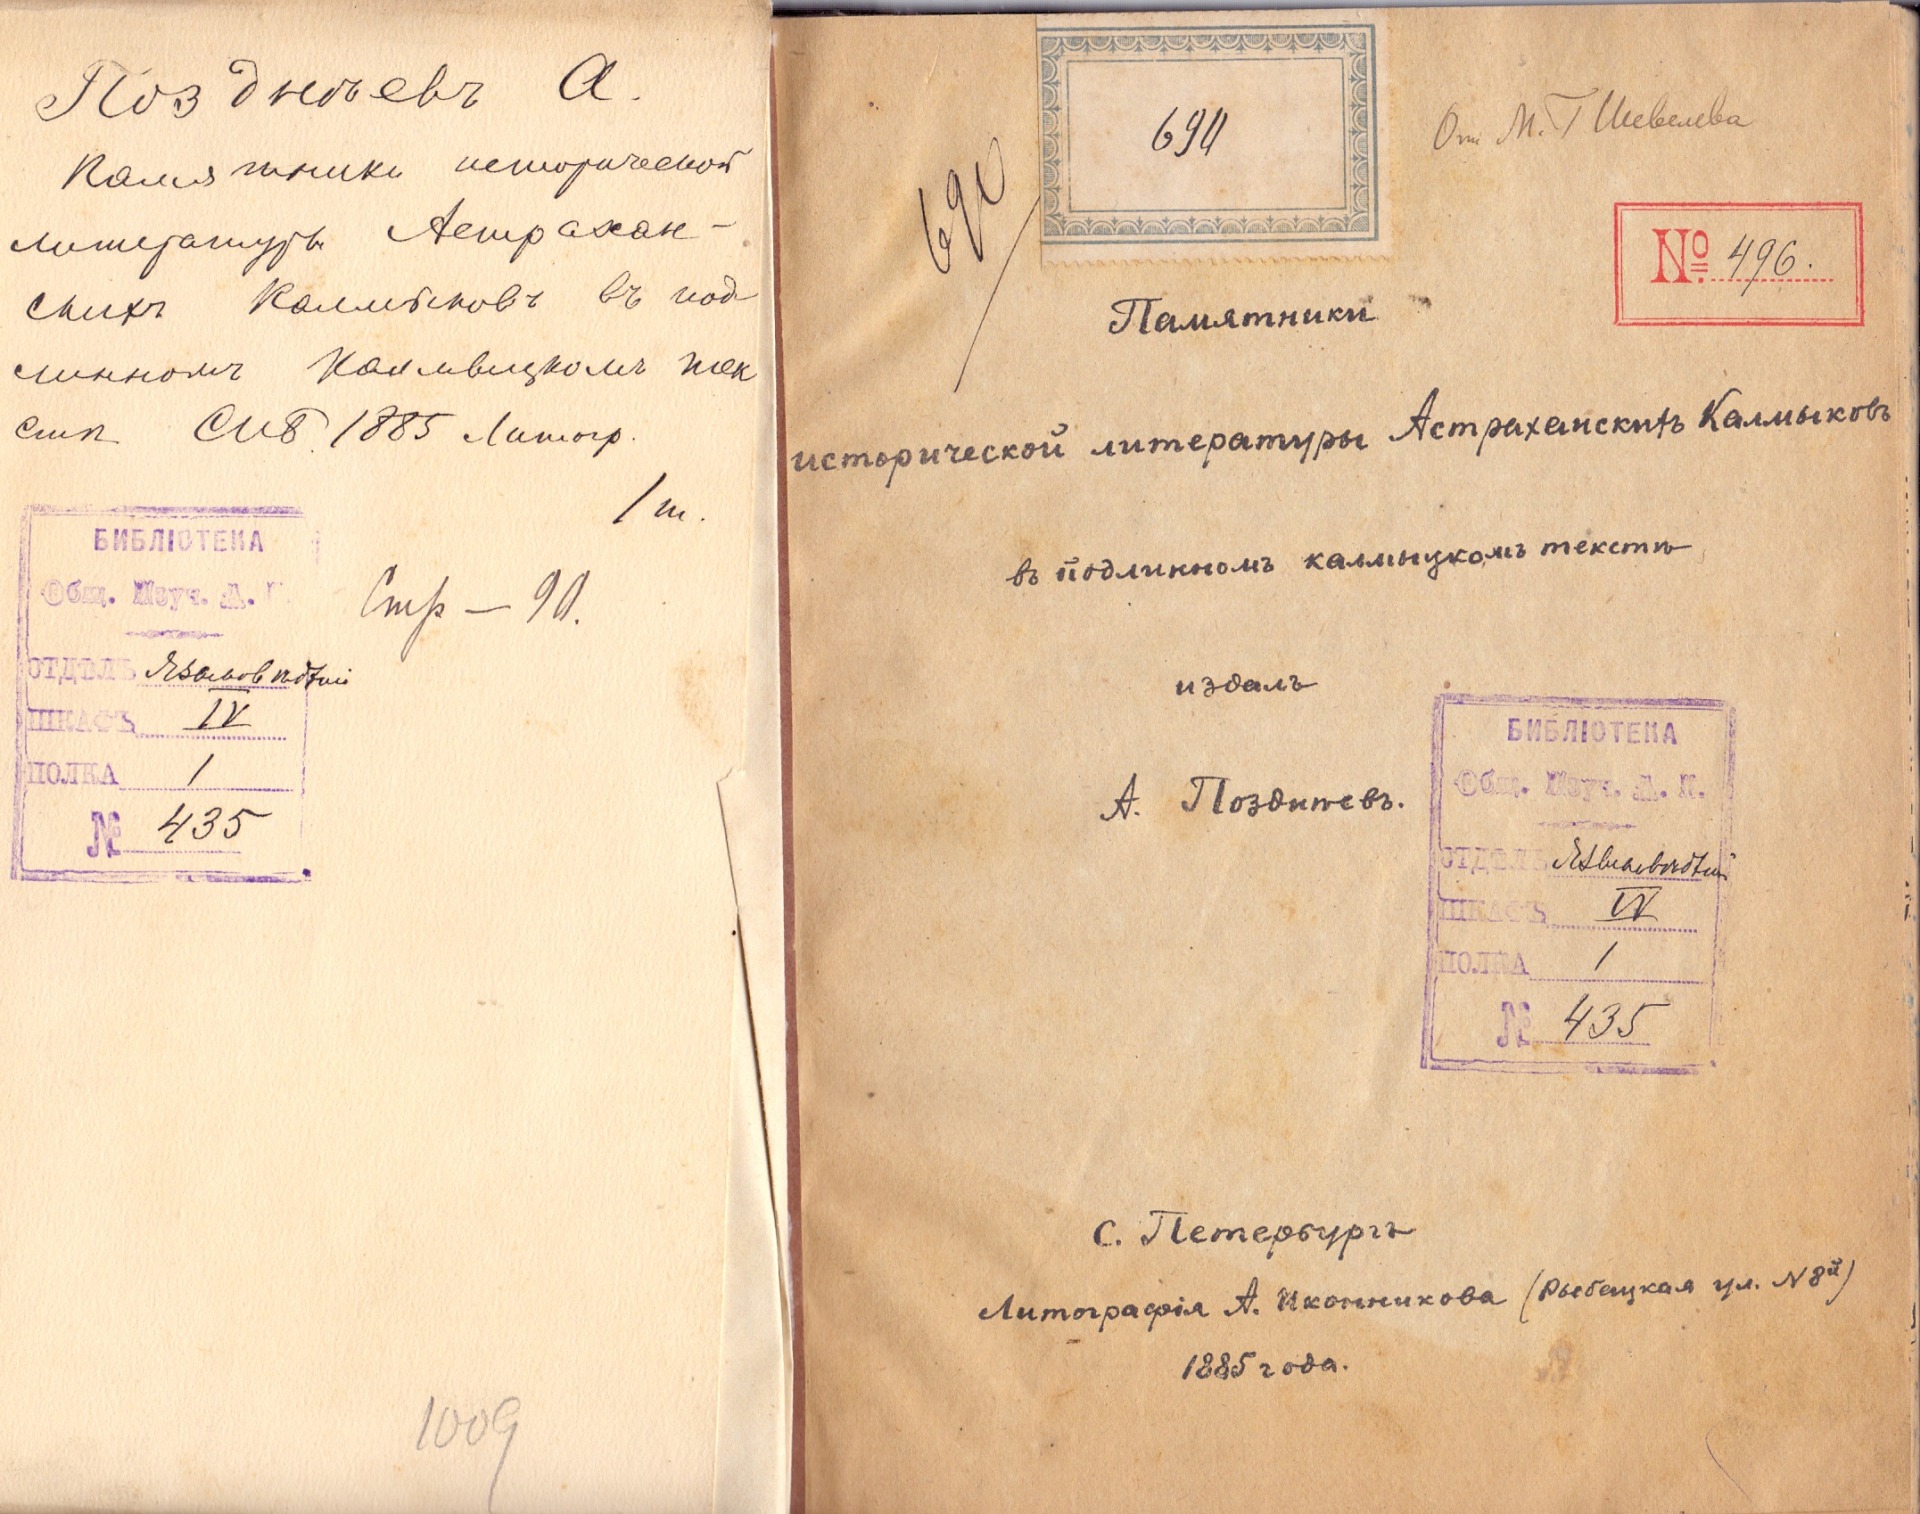 Позднѣевъ А.
Памятники исторической
литературы Астрахан-
скихъ Калмыковъ въ под
линномъ Калмыцкомъ тек
стѣ СПБ. 1885 Литогр.
1 т.
Стр — 90.
БИБЛІОТЕКА
Общ. Изуч. А. К.
ОТДѢЛЪ
ШКАФЪ IV
ПОЛКА 1
№ 435
1009
694
690
От М. Г Шевелева
№ 496.
Памятники
исторической литературы Астраханскихъ Калмыковъ
въ подлинномъ калмыцкомъ текстѣ
издалъ
А. Позднѣевъ.
БИБЛІОТЕКА
Общ. Изуч. А. К.
ОТДѢЛЪ
ШКАФЪ IV
ПОЛКА 1
№ 435
С. Петербургъ
Литографія А. Иконникова (Рыбацкая ул. N 8й)
1885 года.